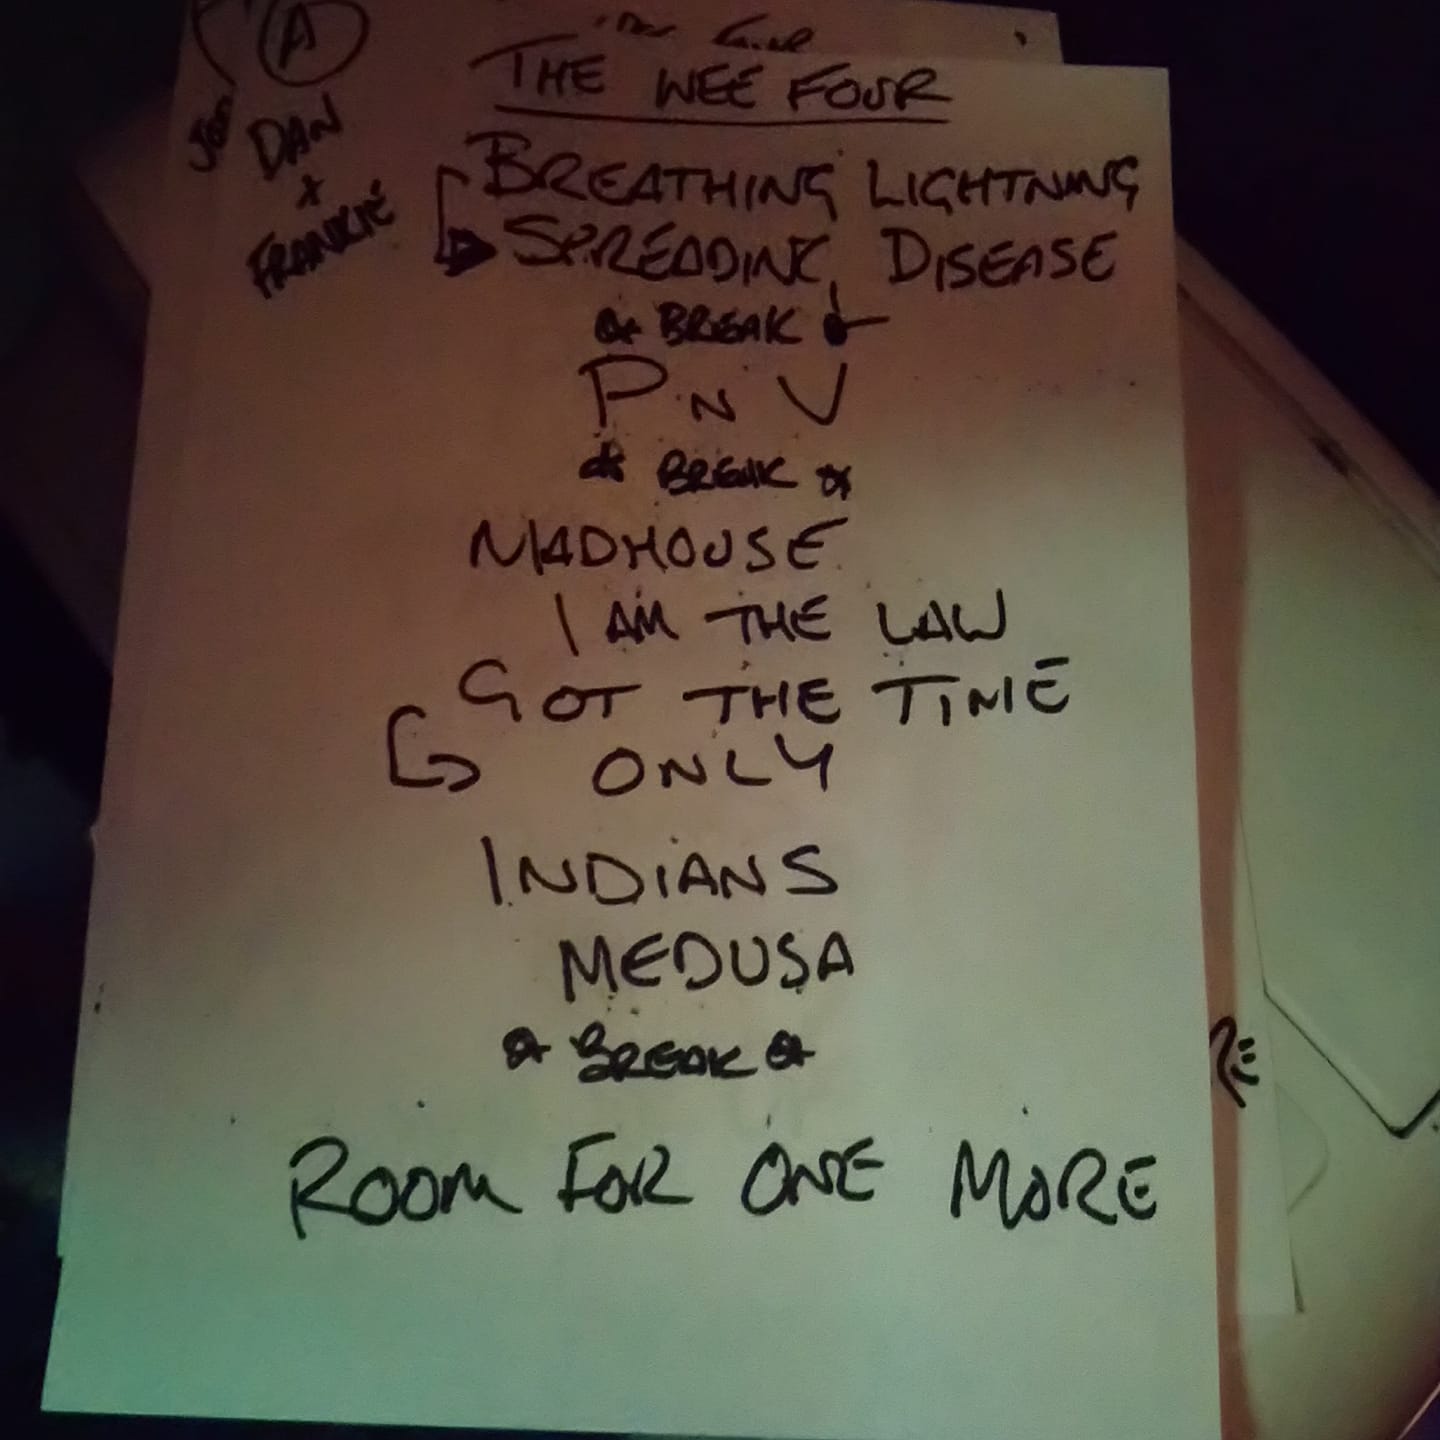 A
Jon
DAN
x
FRANKIE
THE WEE FOUR
BREATHING LIGHTNING
SPREADING DISEASE
* BREAK *
P N V
* BREAK *
MADHOUSE
I AM THE LAW
GOT THE TIME
ONLY
INDIANS
MEDUSA
* BREAK *
ROOM FOR ONE MORE